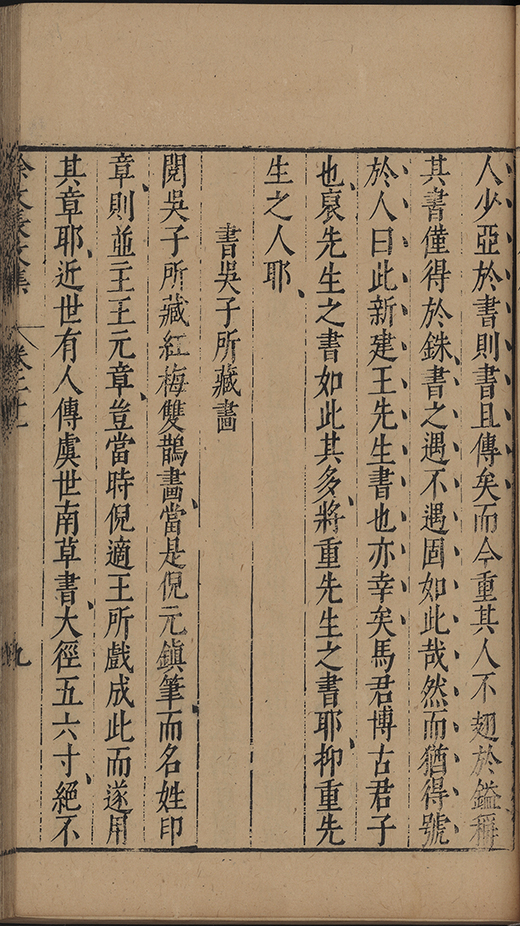 人少亞於書則書且傳矣而今重其人不翅於鎰稱
其書僅得於銖書之遇不遇固如此哉然而猶得號
於人曰此新建王先生書也亦幸矣馬君博古君子
也裒先生之書如此其多將重先生之書耶抑重先
生之人耶
書吳子所藏畫
閱吳子所藏紅梅雙鵲畫當是倪元鎮筆而名姓印
章則並主王元章豈當時倪適王所戲成此而遂用
其章耶近世有人傳虞世南草書大徑五六寸絕不
徐文長文集 卷二十一 九